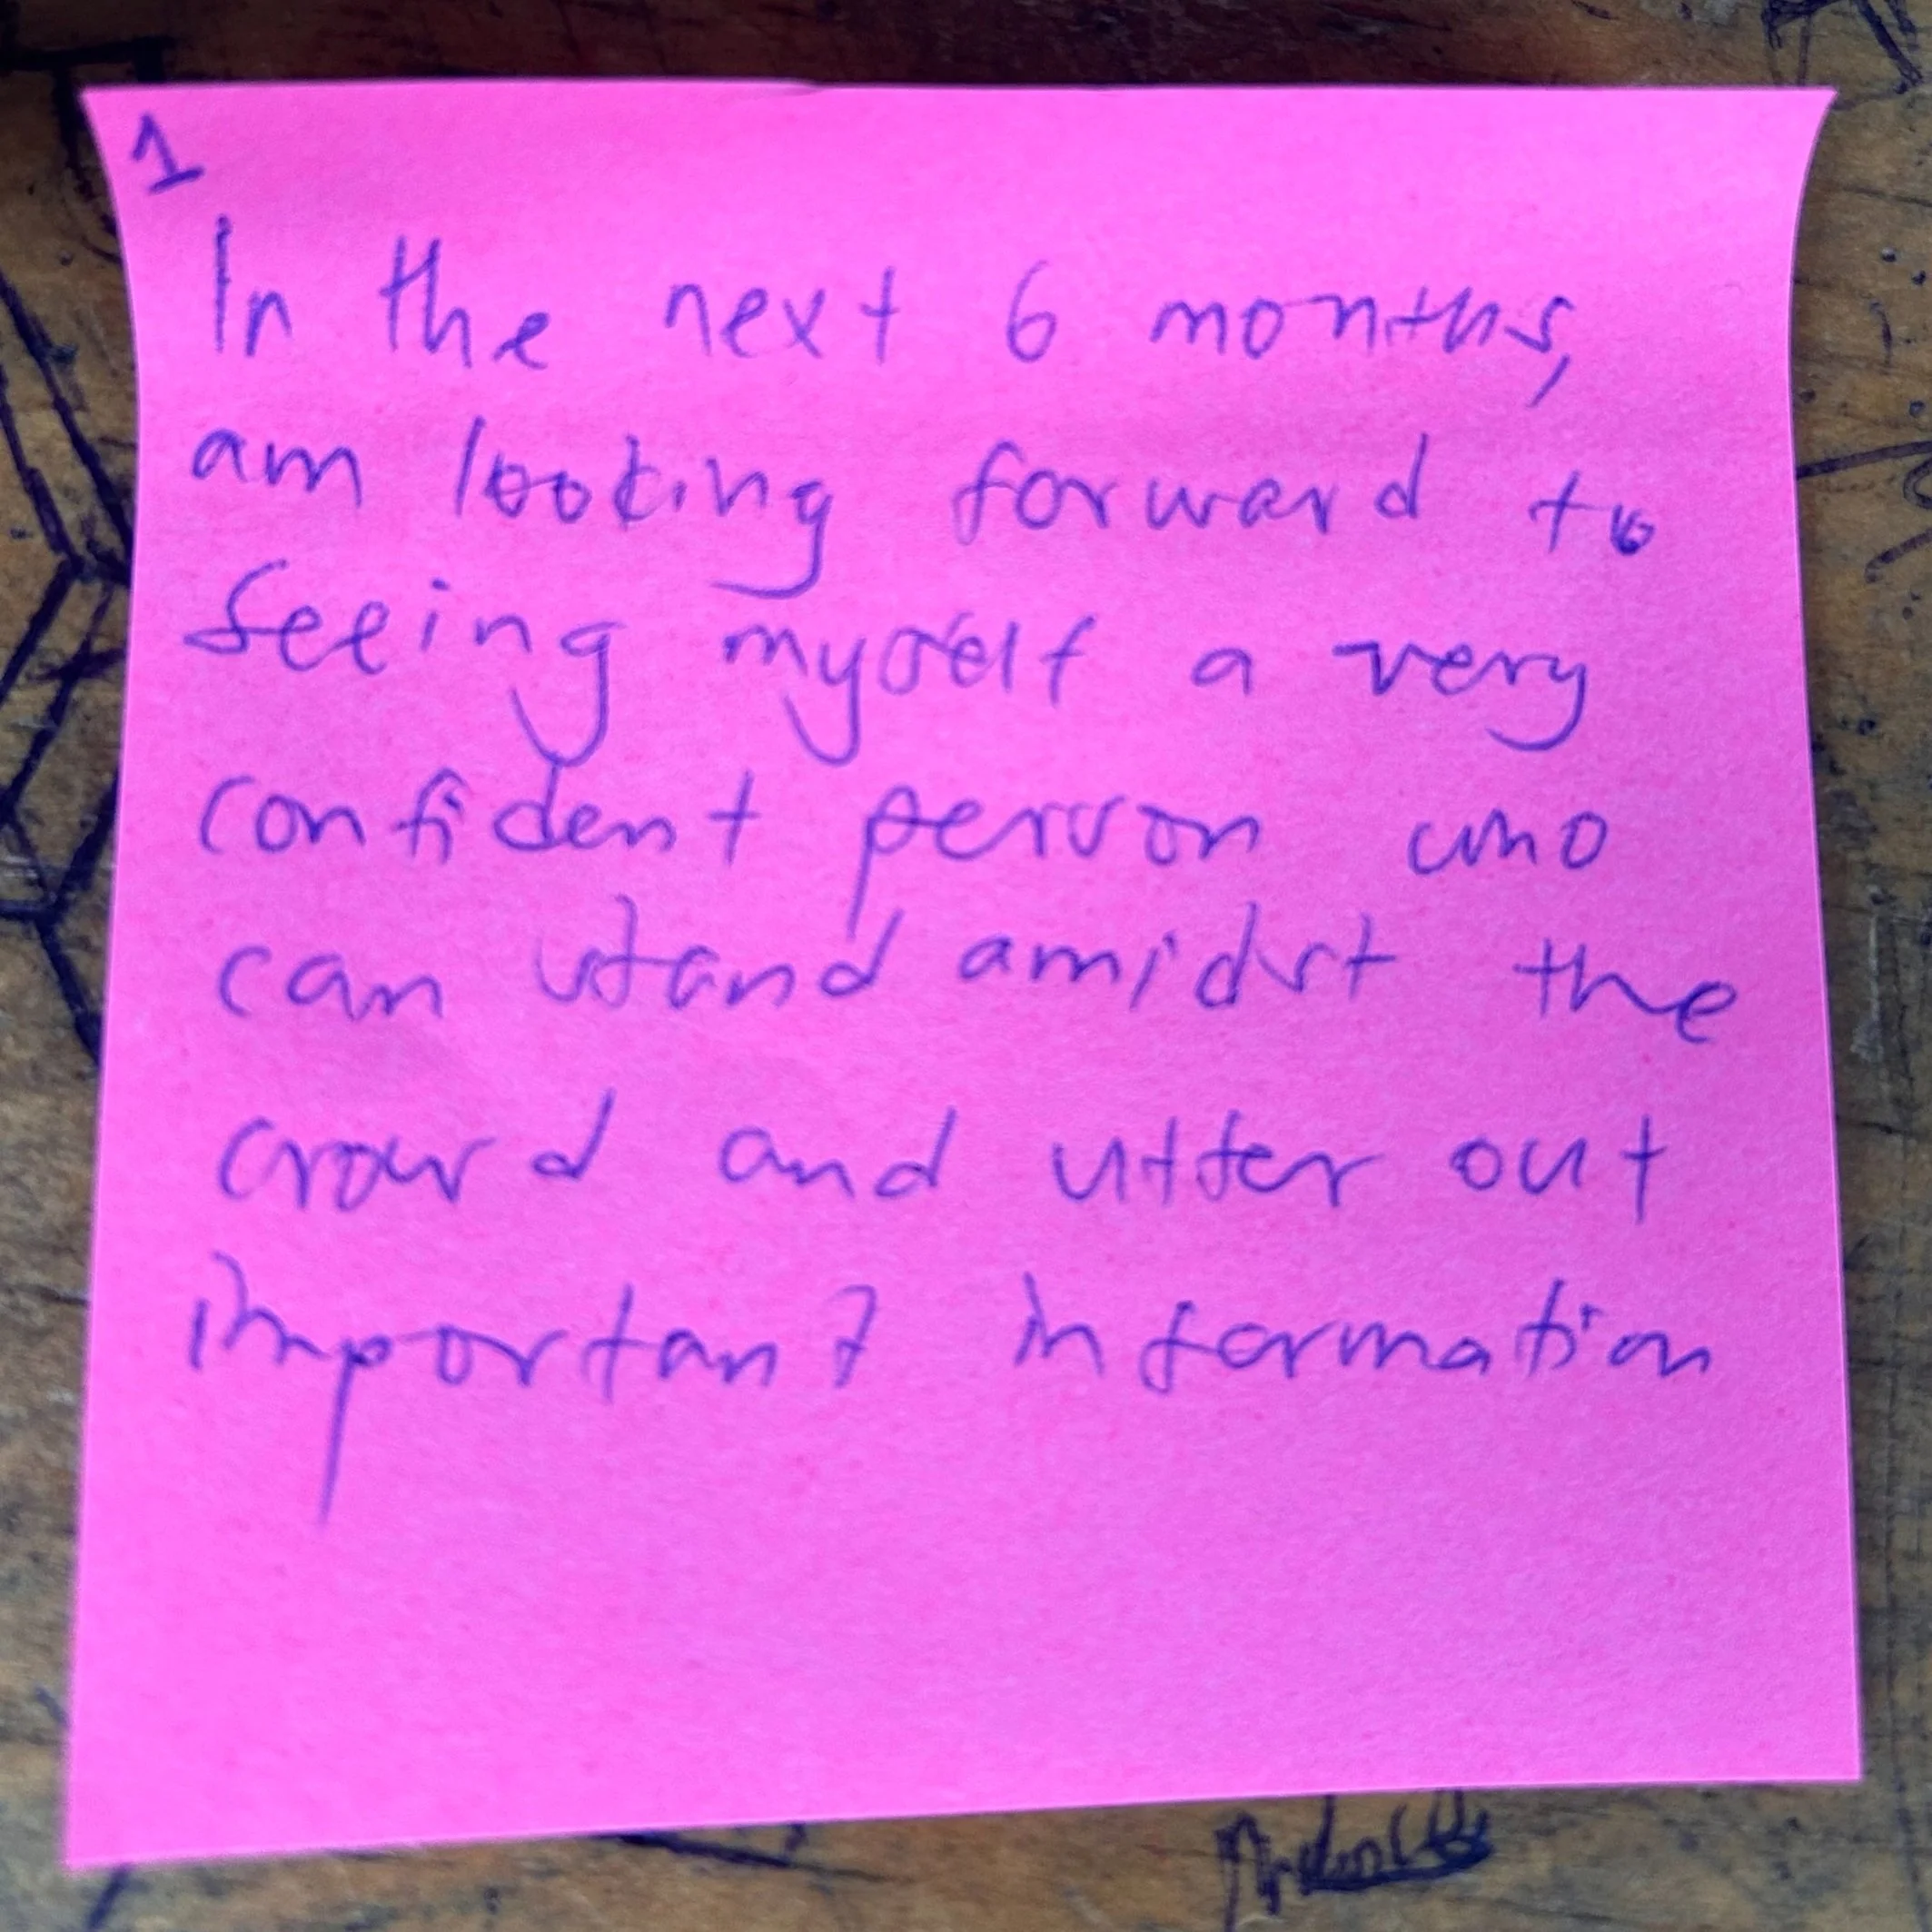 1
In the next 6 months,
am looking forward to
seeing myself a very
confident person who
can stand amidst the
crowd and utter out
important information